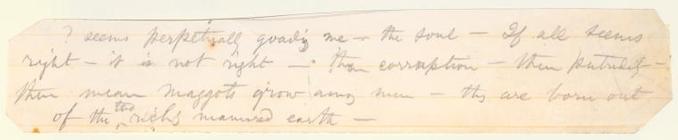 ? seems perpetually goading me in the soul — If all seems
right — it is not right — then corruption — then putridity —
then mean maggots grow among men — they are born out
of the too richly manured earth —